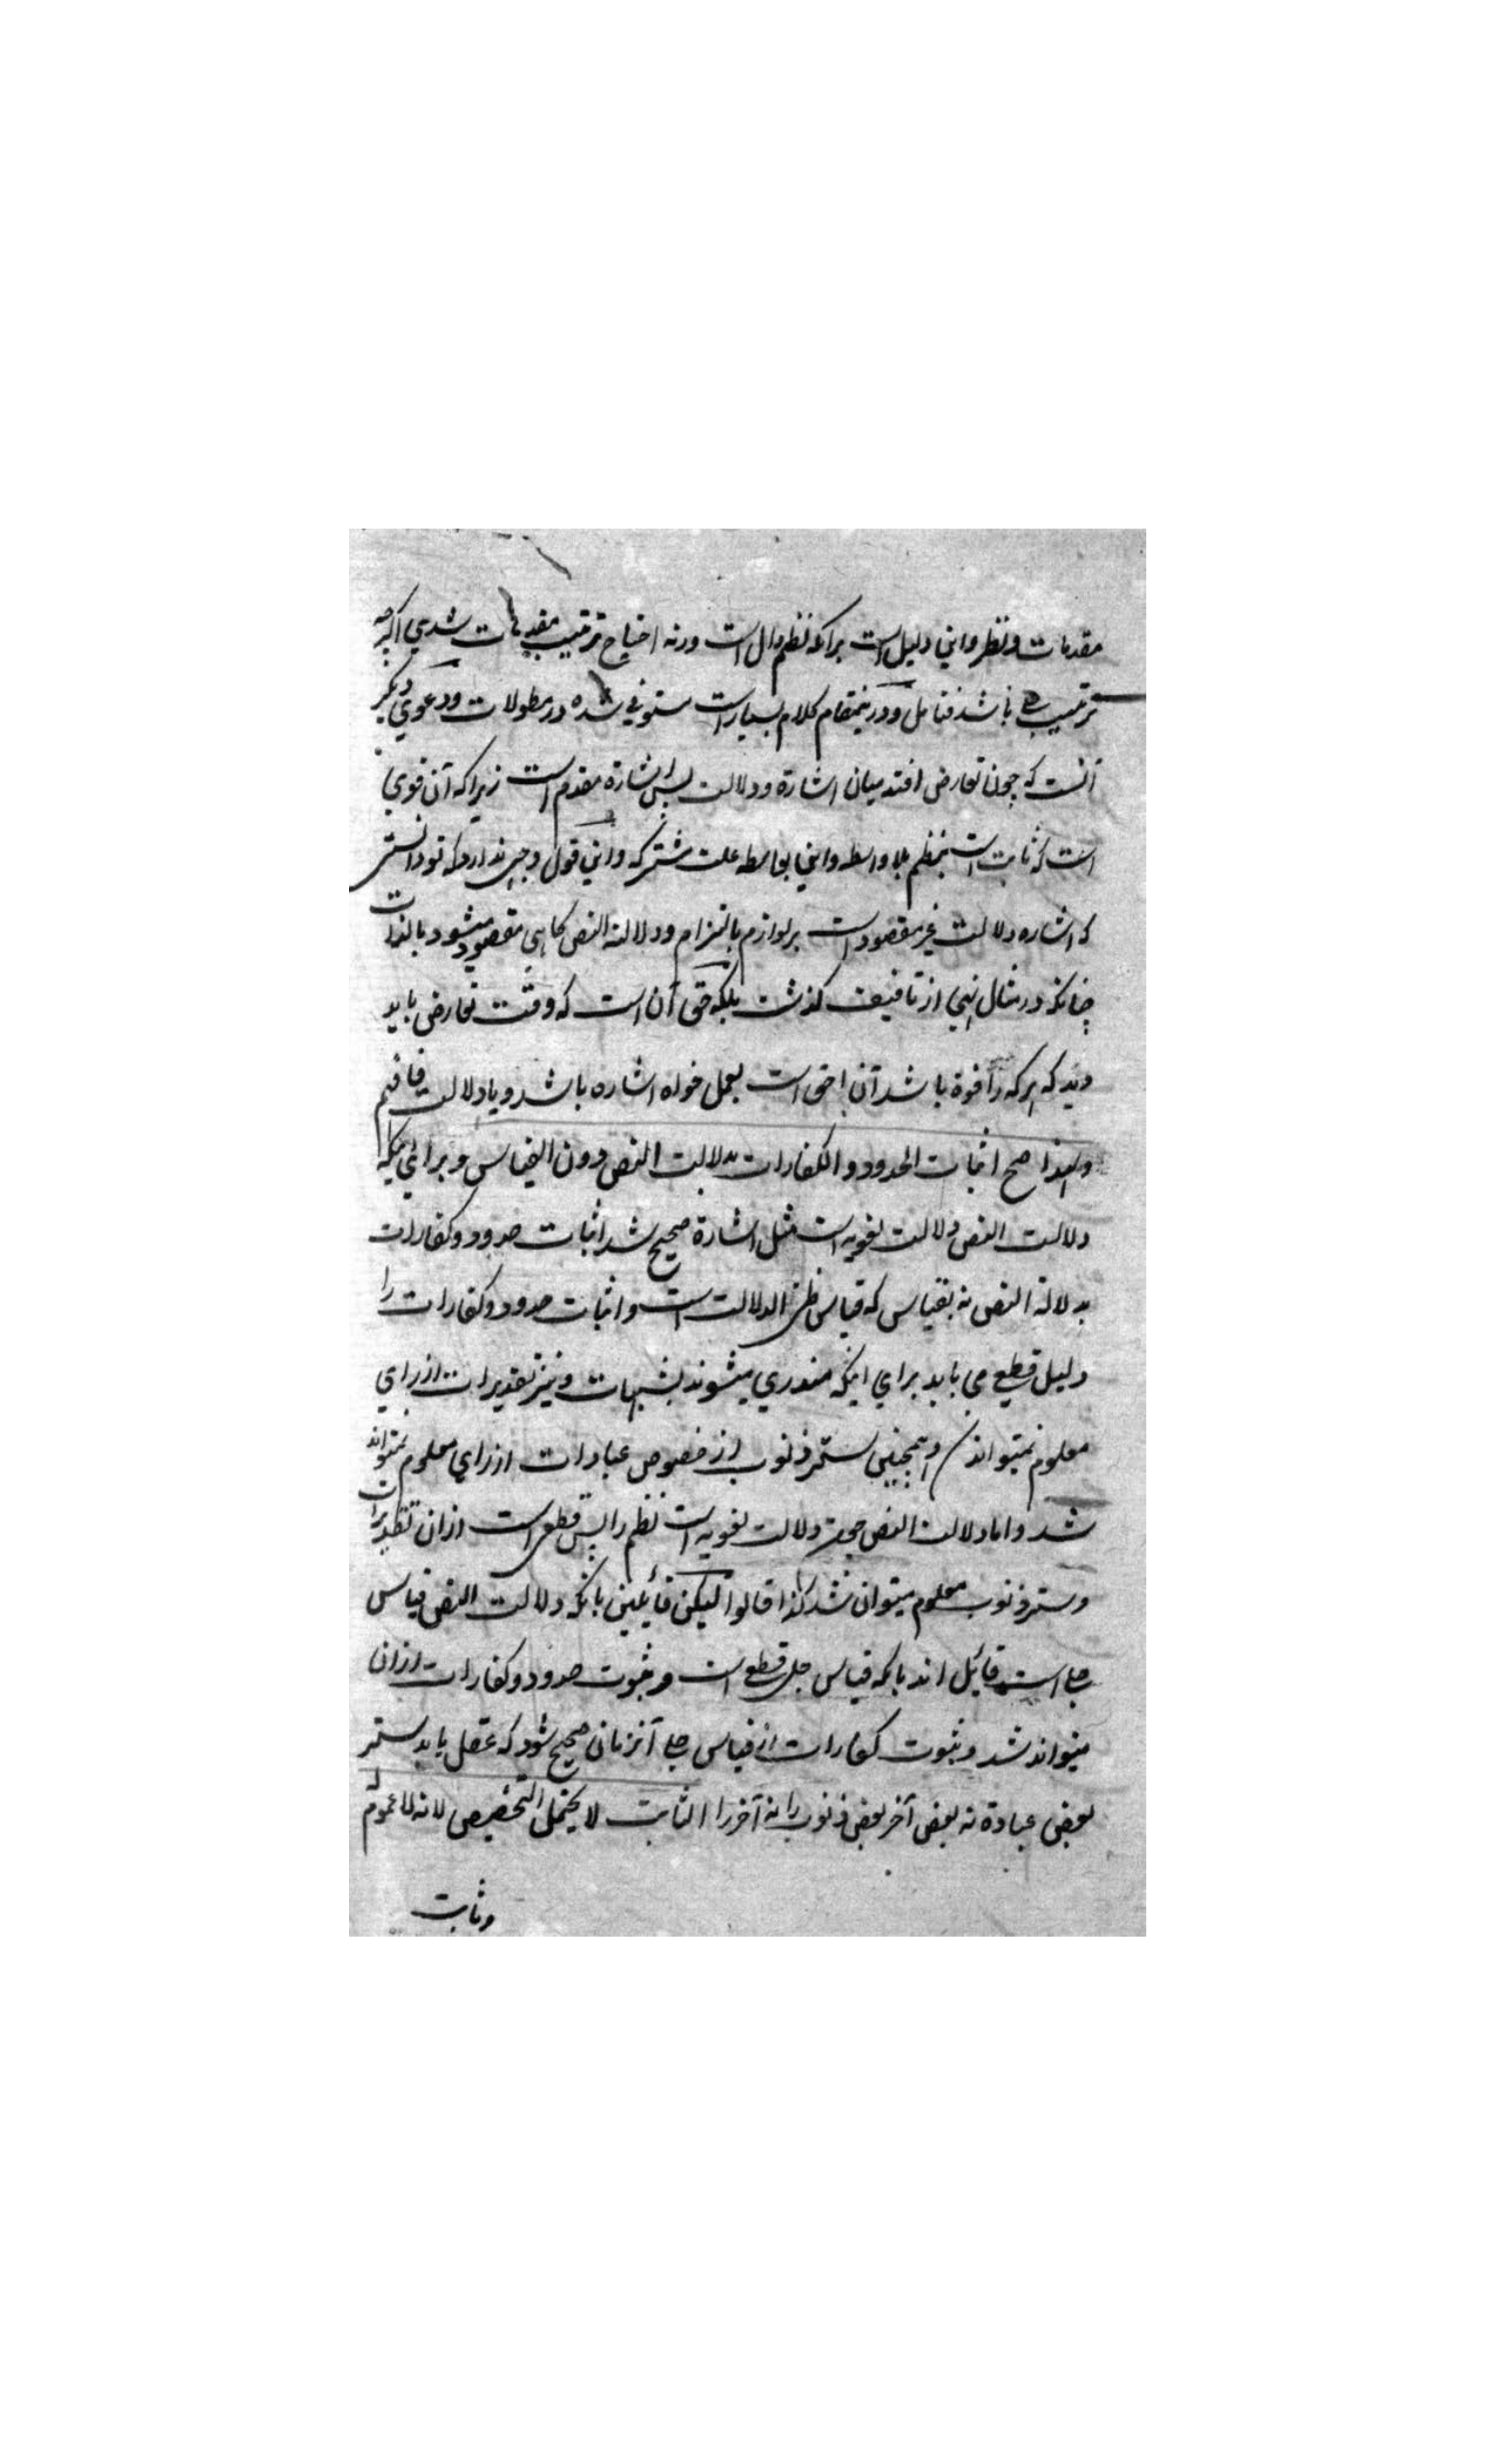 مقدمات ونظر واین دلیل است برآنکه نظم دال است ورنه احتیاج ترتیب مقدمات شدی اکرچه
ترتیب باشد فتامل ودرینمقام کلام بسیار است مستوفی شده در مطولات ودعوی دیکر
آنست که چون تعارض افتد میان اشارة ودلالت پس اشارة مقدم است زیرا که آن قوی
است که ثابت است بنظم بلا واسطه واین بواسطه علت مشترکه واین قول وجهی ندارد که تو دانستی
که اشاره دلالت غیر مقصود است بر لوازم بالتزام ودلالة النص کاهی مقصود میشود بالذات
چنانکه در مثال نهی از تافیف کذشت بلکه حق آن است که وقت تعارض باید
دید که هر که را قوة باشد آن احق است بعمل خواه اشاره باشد ویا دلالت فافهم
ولهذا صح اثبات الحدود والکفارات بدلالت النص دون القیاس وبرای اینکه
دلالت النص دلالت لغویه است مثل اشارة صحیح شد اثبات حدود وکفارات
بدلالة النص نه بقیاس که قیاس ظنی الدلالت است واثبات حدود وکفارات را
دلیل قطعی می باید برای اینکه مندری میشوند بشبهات ونیز تقدیرات از رای
معلوم نمیتواند وهمچنین ستر ذنوب از خصوص عبادات از رای معلوم نمیتواند
شد واما دلالت النص دلالت لغویه است نظم را پس قطعی است ازان تقدیرات
وستر ذنوب معلوم میتوان شد کذا قالوا لیکن قائلین بانکه دلالت النص قیاس
جلی است قائل اند بانکه قیاس جلی قطعی است وثبوت حدود وکفارات ازان
میتواند شد وثبوت کفارات از قیاس جلی آنزمان صحیح شود که عقل یابد ستر
بعض عبادة نه بعض آخر بعض ذنوب را نه آخر را الثابت لا یحتمل التخصیص لانه لا عموم له
وثابت